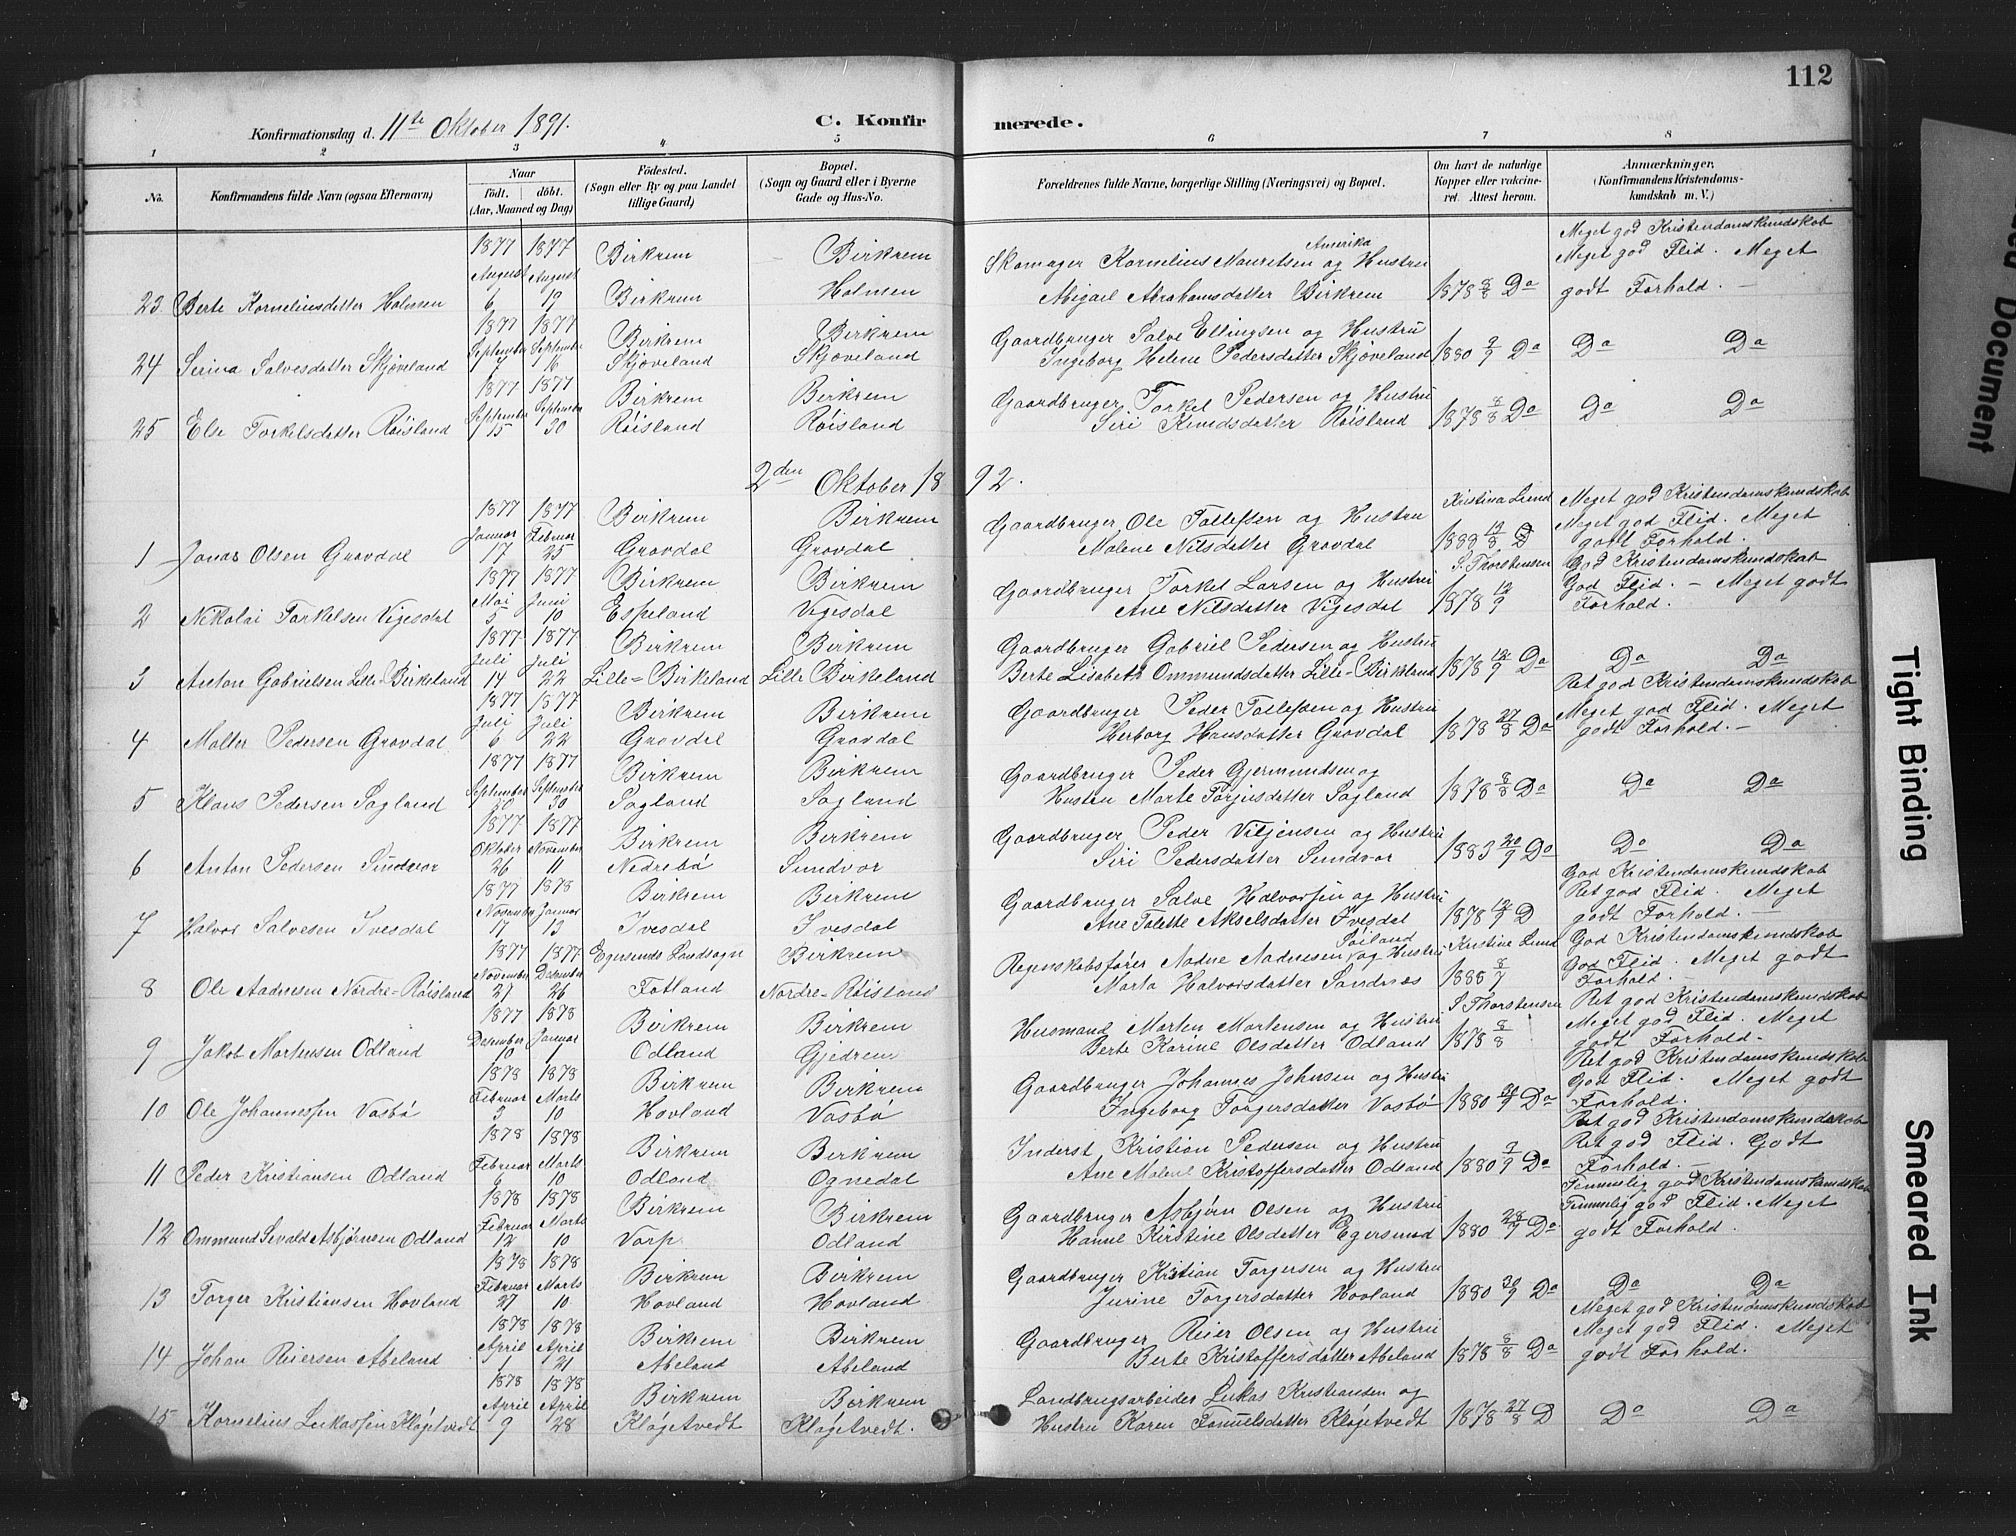 112
Konfirmationsdag d. 11te Oktober 1891.
C. Konfirmerede.
1 2 3 4 5 6 7 8
No. Konfirmandens fulde Navn (ogsaa Efternavn) Naar Födt. döbt. (Aar, Maaned og Dag) Födested. (Sogn eller By og paa Landet tillige Gaard) Bopæl. (Sogn og Gaard eller i Byerne Gade og Hus-No. Forældrenes fulde Navne, borgerlige Stilling (Næringsvei) og Bopæl. Om havt de naturlige Kopper eller vaccineret. Attest herom. Anmærkninger. (Konfirmandens Kristendomskundskab m. V.)
23 Berte Korneliusdatter Holmen 1877 August 6 1877 August 19 Birkrem Birkrem Birkrem Holmen Skomager Kornelius Mauritsen Amerika og Hustru Abigael Abrahamsdatter Birkrem 1878 8/8 Do Meget god Kristendomskundskab Meget god Flid. Meget godt Forhold. —
24 Serina Salvesdatter Skjöveland 1877 September 7 1877 September 16 Birkrem Skjöveland Birkrem Skjöveland Gaardbruger Salve Ellingsen og Hustru Ingeborg Helene Pedersdatter Skjöveland 1880 9/9 Do Do Do
25 Else Torkelsdatter Röisland 1877 September 15 1877 September 30 Birkrem Röisland Birkrem Röisland Gaardbruger Torkel Pedersen og Hustru Siri Knudsdatter Röisland 1878 8/8 Do Do Do
2den Oktober 1892.
1 Jonas Olsen Grovdal 1877 Januar 17 1877 Februar 25 Birkrem Grovdal Birkrem Grovdal Gaardbruger Ole Tollefsen og Hustru Malene Nilsdatter Grovdal Kristina Lund Meget god Kristendomskundskab Meget god Flid. Meget godt Forhold.
2 Nikolai Torkelsen Vigesdal 1877 Mai 5 1877 Juni 10 Birkrem Espeland Birkrem Vigesdal Gaardbruger Torkel Larsen og Hustru Ane Nilsdatter Vigesdal S. Thorstensen 1878 12/9 God Kristendomskundskab God Flid. — Meget godt Forhold.
3 Anton Gabrielsen Lille-Birkeland 1877 Juli 14 1877 Juli 22 Birkrem Lille-Birkeland Birkrem Lille Birkeland Gaardbruger Gabriel Pedersen og Hustru Berte Lisabeth Ommundsdatter Lille-Birkeland 1878 12/9 Do Do Do
4 Malter Pedersen Grovdal 1877 Juli 6 1877 Juli 22 Birkrem Grovdal Birkrem Grovdal Gaardbruger Peder Tollefsen og Hustru Herborg Hansdatter Grovdal 1878 27/8 Do Ret god Kristendomskundskab Meget god Flid. Meget godt Forhold. —
5 Klaus Pedersen Sagland 1877 September 20 1877 September 30 Birkrem Sagland Birkrem Sagland Gaardbruger Peder Gjermundsen og Hustru Marte Torgiesdatter Sagland 1878 8/8 Do Do Do
6 Anton Pedersen Sundvor 1877 Oktober 26 1877 November 11 Birkrem Nedrebö Birkrem Sundvor Gaardbruger Peder og Hustru Siri Pedersdatter Sundvor 1883 20/9 Do Do Do
7 Halvor Salvesen Ivesdal 1877 November 17 1878 Januar 13 Birkrem Ivesdal Birkrem Ivesdal Gaardbruger Salve Halvorsen og Hustru Ane Talette Akselsdatter Ivesdal 1878 12/9 D God Kristendomskundskab Ret god Flid. Meget godt Forhold. —
8 Ole Aadnesen Nordre-Röisland 1877 November 27 1877 Desember 26 Egersunds Landsogn Fotland Birkrem Nordre-Röisland Regnskabsförer Aadne Aadnesen Söiland og Hustru Marta Halvorsdatter Sandnes Kristine Lund God Kristendomskundskab God Flid. Meget godt Forhold. —
9 Jakob Mortensen Odland 1877 Desember 10 1878 Januar 1 Birkrem Odland Birkrem Gjedrem Husmand Morten Mortensen og Hustru Berte Karine Olsdatter Odland S Thorstensen 1878 8/8 Ret god Kristendomskundskab Meget god Flid. Meget godt Forhold-
10 Ole Johannessen Vasbö 1878 Februar 3 1878 Marts 10 Birkrem Hovland Birkrem Vasbö Gaardbruger Johannes Johnsen og Hustru Ingeborg Torgersdatter Vasbö 1880 Do Ret god Kristendomskundskab God Flid. Meget godt Forhold.
11 Peder Kristiansen Odland 1878 Februar 6 1878 Marts 10 Birkrem Odland Birkrem Ognedal Inderst Kristian Pedersen og Hustru Ane Malene Kristoffersdatter Odland 1880 9/9 Do Ret god Kristendomskundskab Ret god Flid. Godt Forhold.
12 Ommund Sevald Asbjörnsen Odland 1878 Februar 12 1878 Marts 10 Birkrem Vorp Birkrem Odland Gaardbruger Asbjörn Olsen og Hustru Hanne Kirstine Olsdatter Egersund 1880 28/9 Do Temmelig god Kristendomskundskab Temmelig god Flid. Meget godt Forhold.
13 Torger Kristiansen Hovland 1878 Februar 27 1878 Marts 10 Birkrem Hovland Birkrem Hovland Gaardbruger Kristian Torgersen og Hustru Jurine Torgersdatter Hovland 1880 20/9 Do Do Do
14 Johan Reiersen Abeland 1878 April 1 1878 April 21 Birkrem Abeland Birkrem Abeland Gaardbruger Reier Olsen og Hustru Berte Kristoffersdatter Abeland 1878 8/8 Do Meget god Kristendomskundskab Meget god Flid. Meget godt Forhold.
15 Kornelius Lukassen Klögetvedt 1878 April 9 1878 April 28 Birkrem Klögetvedt Birkrem Klögetvedt. Landbrugsarbeider Lukas Kristiansen og Hustru Karen Tomelsdatter Klögetvedt 1878 27/8 D Do Do
Document
Tight Binding
Smeared Ink